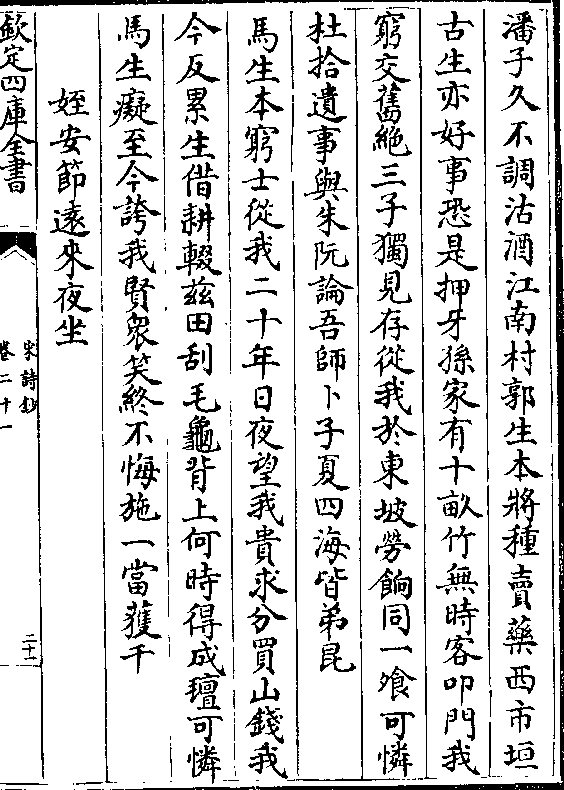 潘子久不調沽酒江南村郭生本將種賣藥西市垣
古生亦好事恐是押牙孫家有十畝竹無時客叩門我
窮交舊絶三子獨見存從我於東坡勞餉同一飧可憐
杜拾遺事與朱阮論吾師卜子夏四海皆弟昆
馬生本窮士從我二十年日夜望我貴求分買山錢我
今反累生借耕輟兹田刮毛龜背上何時得成氊可憐
馬生癡至今誇我賢衆笑終不悔施一當獲千
姪安節遠來夜坐
欽定四庫全書
宋詩鈔
卷二十一
二十二